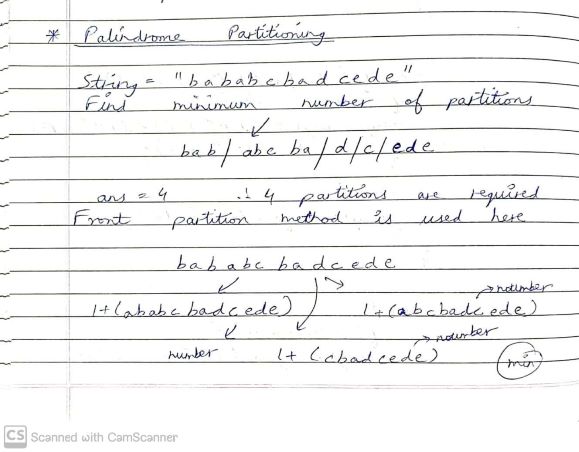 * Palindrome Partitioning
String = "bababcbadcede"
Find minimum number of partitions
bab/abcba/d/c/ede
ans = 4 ∴ 4 partitions are required
Front partition method is used here
bababcbadcede
→ number
1+(ababcbadcede) 1+(abcbadcede)
→ number
number 1+(cbadcede) min
CS Scanned with CamScanner